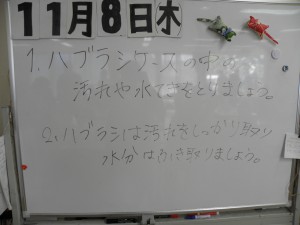 11月8日木
1. ハブラシケースの中の
汚れや水てきをとりましょう。
2. ハブラシは汚れをしっかり取り
水分はふき取りましょう。